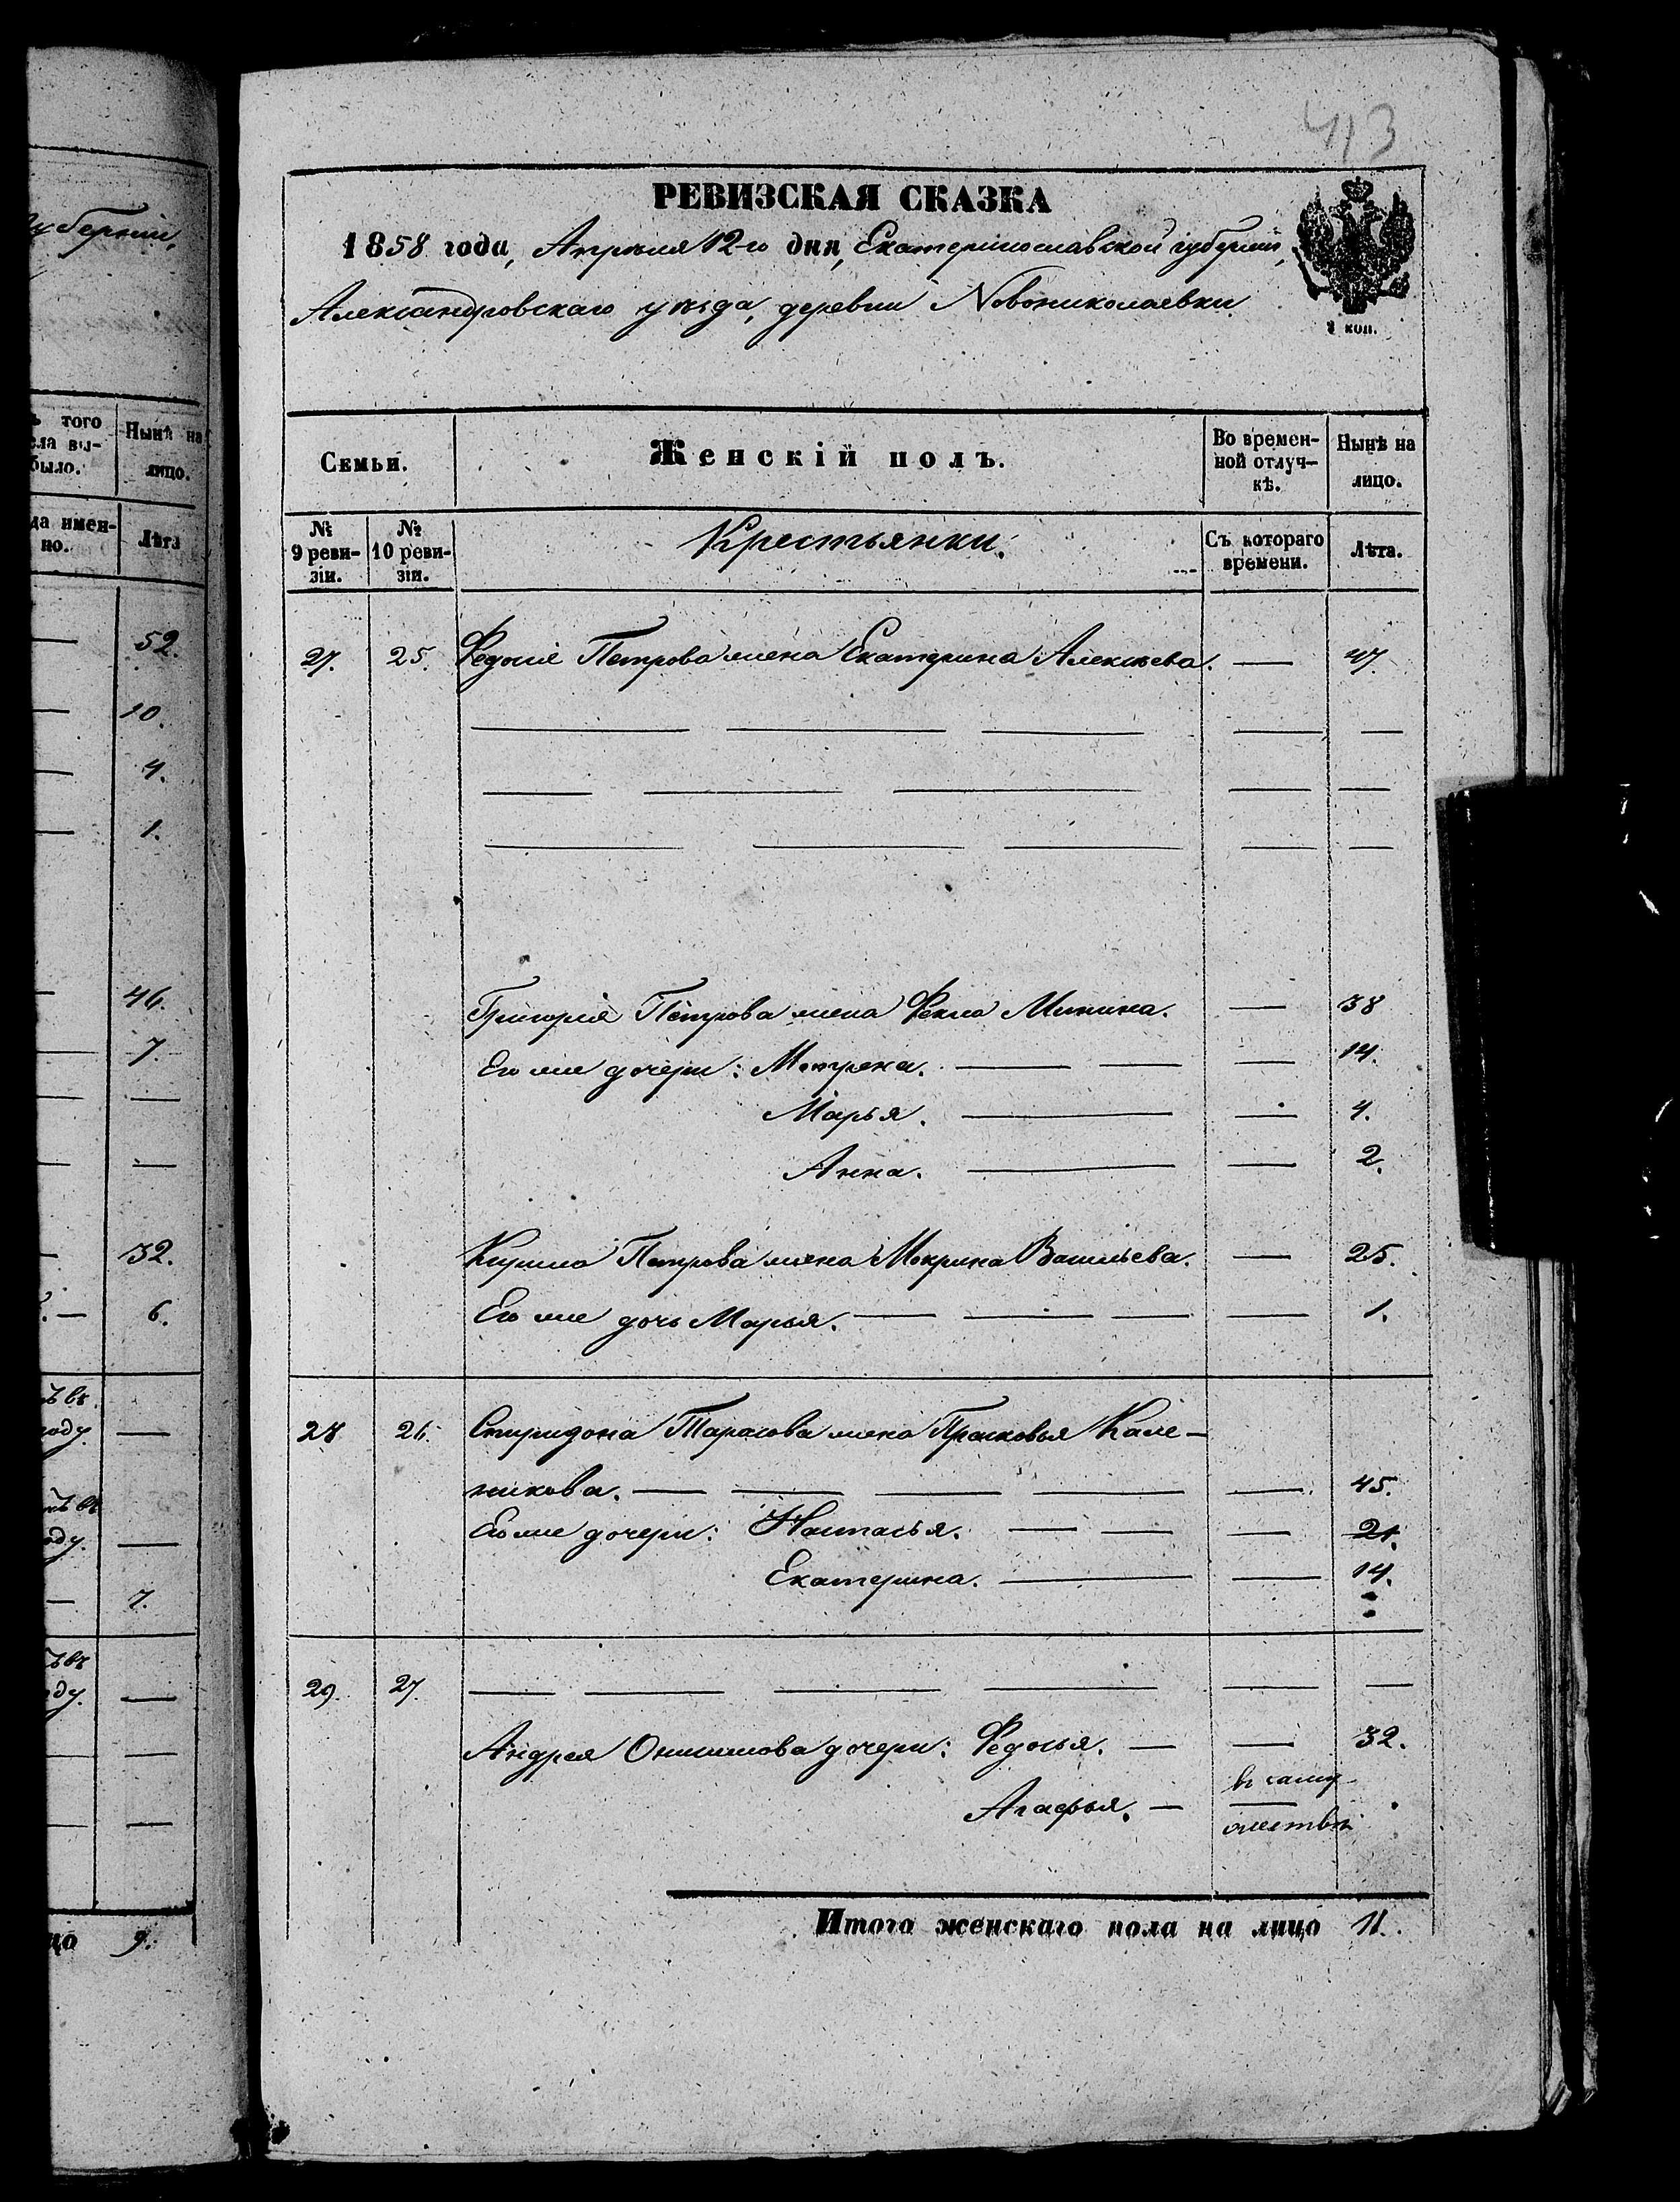 губерніи,
ъ того Нынѣ на
сла вы-
было. лицо.
да имен- Лѣта
но.
— 52.
— 10.
— 4.
— 1.
— 46.
— 7.
— —
— —
— 32.
— 6.
ъ въ
году. —
ъ въ
оду. —
— 7.
ъ въ
оду. —
— —
— —
цо 9.
413
РЕВИЗСКАЯ СКАЗКА
1858 года, Апрѣля 12-го дня, Екатеринославской губерніи,
Александровскаго уѣзда, деревни Новониколаевки.
коп.
Семьи. Женскій полъ. Во времен- Нынѣ на
ной отлуч-
кѣ. лицо.
№ № Крестьянки. Съ котораго Лѣта.
9 реви- 10 реви- времени.
зіи. зіи.
27. 25. Ѳедосія Петрова жена Екатерина Алексѣева. — 47
— — — — —
— — — — —
— — — — —
Григорія Петрова жена Ѳекла Минина. — 38
Его же дочери: Мотрена. — — — 14.
Марья. — — 4.
Анна. — — 2.
Кирила Петрова жена Мокрина Васильева. — 25.
Его же дочь Марья. — — — — 1.
28 26. Спиридона Тарасова жена Прасковья Кале-
никова. — — — — — 45.
Его же дочери: Настасья. — — — 21.
Екатерина. — — 14.
29. 27. — — — — — —
Андрея Онисимова дочери: Ѳедосья. — — 32.
Агафья. — въ заму-
жествѣ
Итого женскаго пола на лицо 11.